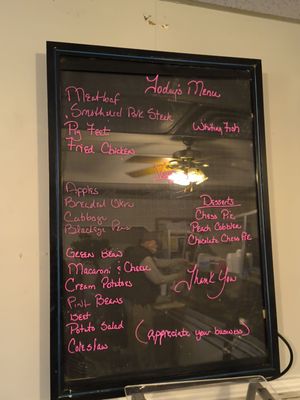 Today's Menu
Meatloaf
Smothered Pork Steak
Pig Feet
Whiting Fish
Fried Chicken
Apples
Breaded Okra
Cabbage
Blackeye Peas
Desserts
Chess Pie
Peach Cobbler
Chocolate Chess Pie
Green Beans
Macaroni & Cheese
Cream Potatoes
Pinto Beans
Beet
Potato Salad
Coleslaw
Thank You
(Appreciate your business)